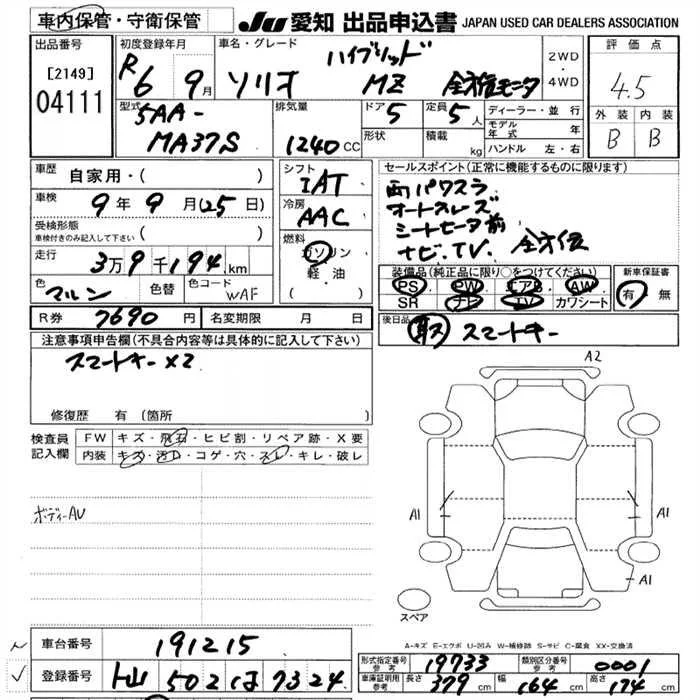 車内保管・守衛保管
JU 愛知 出品申込書 JAPAN USED CAR DEALERS ASSOCIATION
出品番号
[2149]
04111
初度登録年月
R6 9月
車名・グレード
ハイブリッド
ソリオ MZ 全方位モニタ
2WD
・
4WD
評価点
4.5
外装 内装
B B
型式
5AA-
MA37S
排気量
1240 CC
ドア 5
形状
定員 5 人
積載 kg
ディーラー・並行
モデル
年式 年
ハンドル 左・右
車歴 自家用・( )
車検 9年9月(25日)
受検形態
車検付きのみ記入して下さい ( )
走行 3万9千194km
色 マルン 色替 色コード WAF
シフト
IAT
冷房
AAC
燃料
ガソリン
・
軽油
( )
セールスポイント(正常に機能するものに限ります)
両パワスラ
オートスレズ
シートヒータ前
ナビ.TV. 全方位
装備品(純正品に限り○をつけてください)
PS PW エアB AW
SR ナビ TV カワシート
新車保証書
有・無
R券 7690円 名変期限 月 日
後日品 取ス スマートキー
注意事項申告欄(不具合内容等は具体的に記入して下さい)
スマートキー×2
修復歴 有(箇所 )
検査員
記入欄
FW キズ・飛石・ヒビ割・リペア跡・X要
内装 キズ・汚れ・コゲ・穴・スレ・キレ・破レ
ボディーAU
A2
A1
A1
A1
スペア
A-キズ E-エクボ U-凹み W-補修跡 S-サビ C-腐食 XX-交換済
車台番号 191215
登録番号 502 は 7324
形式指定番号
参考
19733
類別区分番号
参考
0001
車庫証明用
参考
長さ 379 cm 幅 164 cm 高さ 174 cm